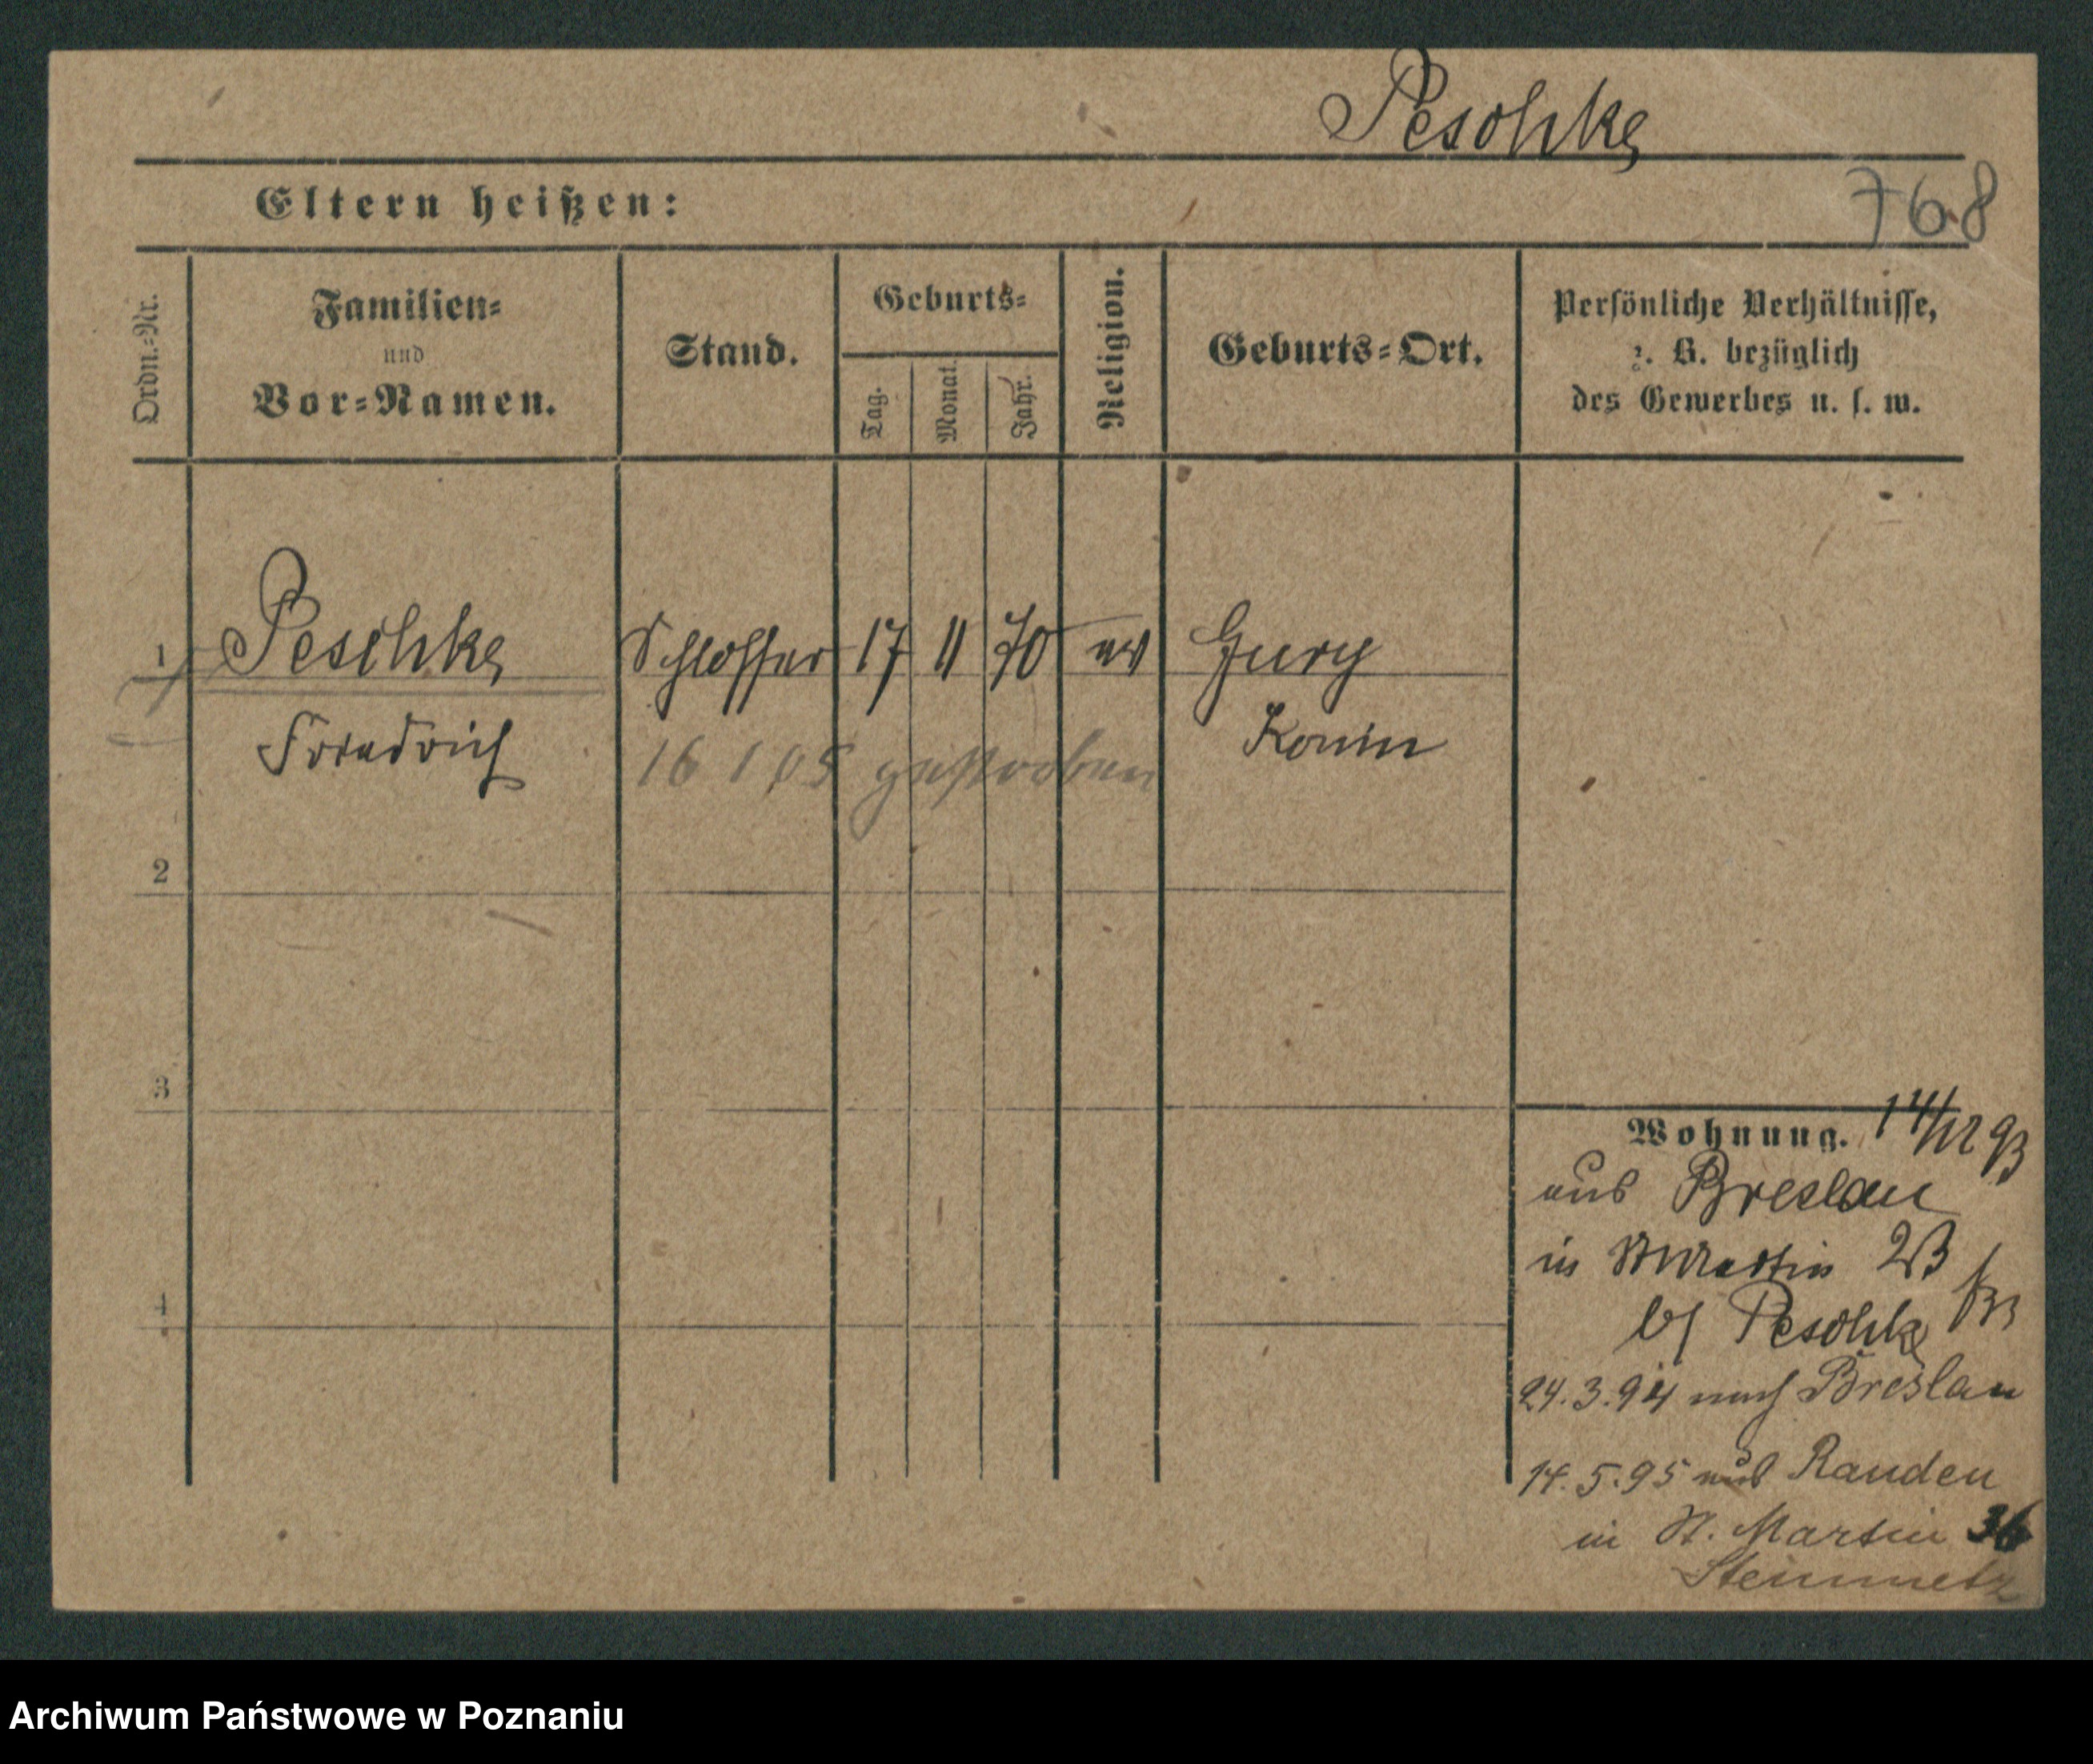 Peschke
768
Eltern heißen:
Ordn.-Nr.
Familien-
und
Vor-Namen.
Stand.
Geburts-
Tag.
Monat.
Jahr.
Religion.
Geburts-Ort.
Persönliche Verhältnisse,
z. B. bezüglich
des Gewerbes u. s. w.
1 Peschke Schlosser 17 11 70 ev Gury
Friedrich Konin
16 1 05 gestorben
2
3
4
Wohnung. 14/12 93
aus Breslau
in St Martin 23
bei Peschke
24.3.94 nach Breslau
14.5.95 aus Rauden
in St. Martin 36
Steinmetz
Archiwum Państwowe w Poznaniu